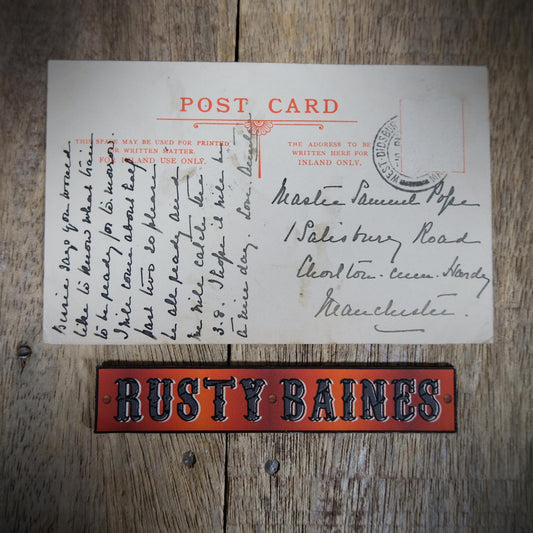 POST CARD
THIS SPACE MAY BE USED FOR PRINTED
OR WRITTEN MATTER.
FOR INLAND USE ONLY.
THE ADDRESS TO BE
WRITTEN HERE FOR
INLAND ONLY.
WEST DIDSBURY
Master Samuel Pope
1 Salisbury Road
Chorlton-cum-Hardy
Manchester.
says you would
like to know what train
to be ready for to-morrow.
I will come about half
past two so please
be all ready and
we will catch the
3.8. I hope it will be
a nice day. Love
RUSTY BAINES